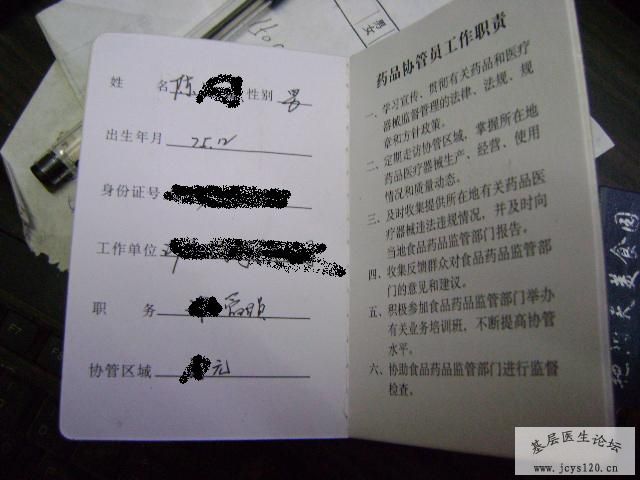 男女
姓 名 陈 性别 男
出生年月 75.12
身份证号
工作单位
职 务
协管区域 元
药品协管员工作职责
一、学习宣传、贯彻有关药品和医疗
器械监督管理的法律、法规、规
章和方针政策。
二、定期走访协管区域，掌握所在地
药品医疗器械生产、经营、使用
情况和质量动态。
三、及时收集提供所在地有关药品医
疗器械违法违规情况，并及时向
当地食品药品监管部门报告。
四、收集反馈群众对食品药品监管部
门的意见和建议。
五、积极参加食品药品监管部门举办
有关业务培训班，不断提高协管
水平。
六、协助食品药品监管部门进行监督
检查。
美食园
基层医生论坛
www.jcys120.cn